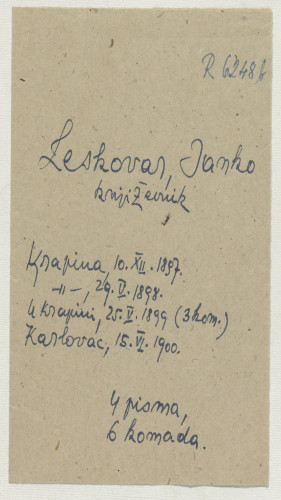 R 6248 b
Leskovar, Janko
književnik
Krapina, 10. XII. 1897.
-||-, 29. V. 1898.
U Krapini, 25. V. 1899 (3 kom.)
Karlovac, 15. VI. 1900.
4 pisma,
6 komada.